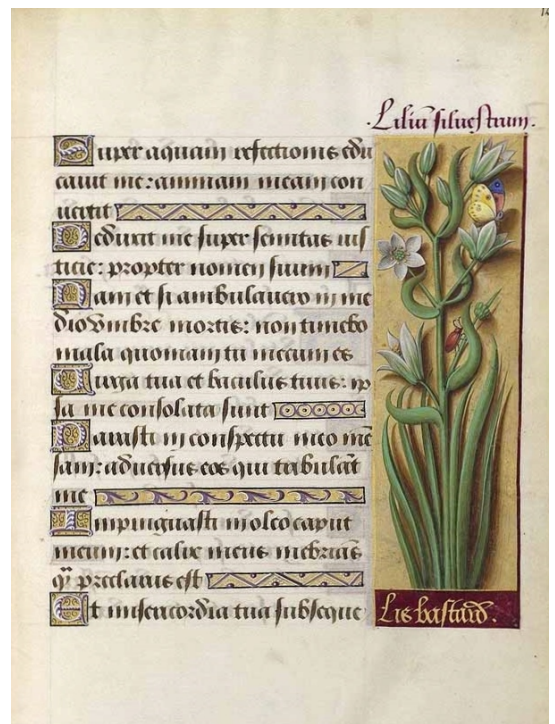 Liliū siluestrum.
Super aquam refectionis edu
cavit me: animam meam con
vertit
Deduxit me super semitas ius
ticie: propter nomen suum
Nam et si ambulavero in me
dio umbre mortis: non timebo
mala quoniam tu mecum es
Virga tua et baculus tuus: ip
sa me consolata sunt
Parasti in conspectu meo mē
sam: adversus eos qui tribulāt
me
Impinguasti in oleo caput
meum: et calix meus inebriās
q̄ȝ preclarus est
Et misericordia tua subseque
Lis bastard.